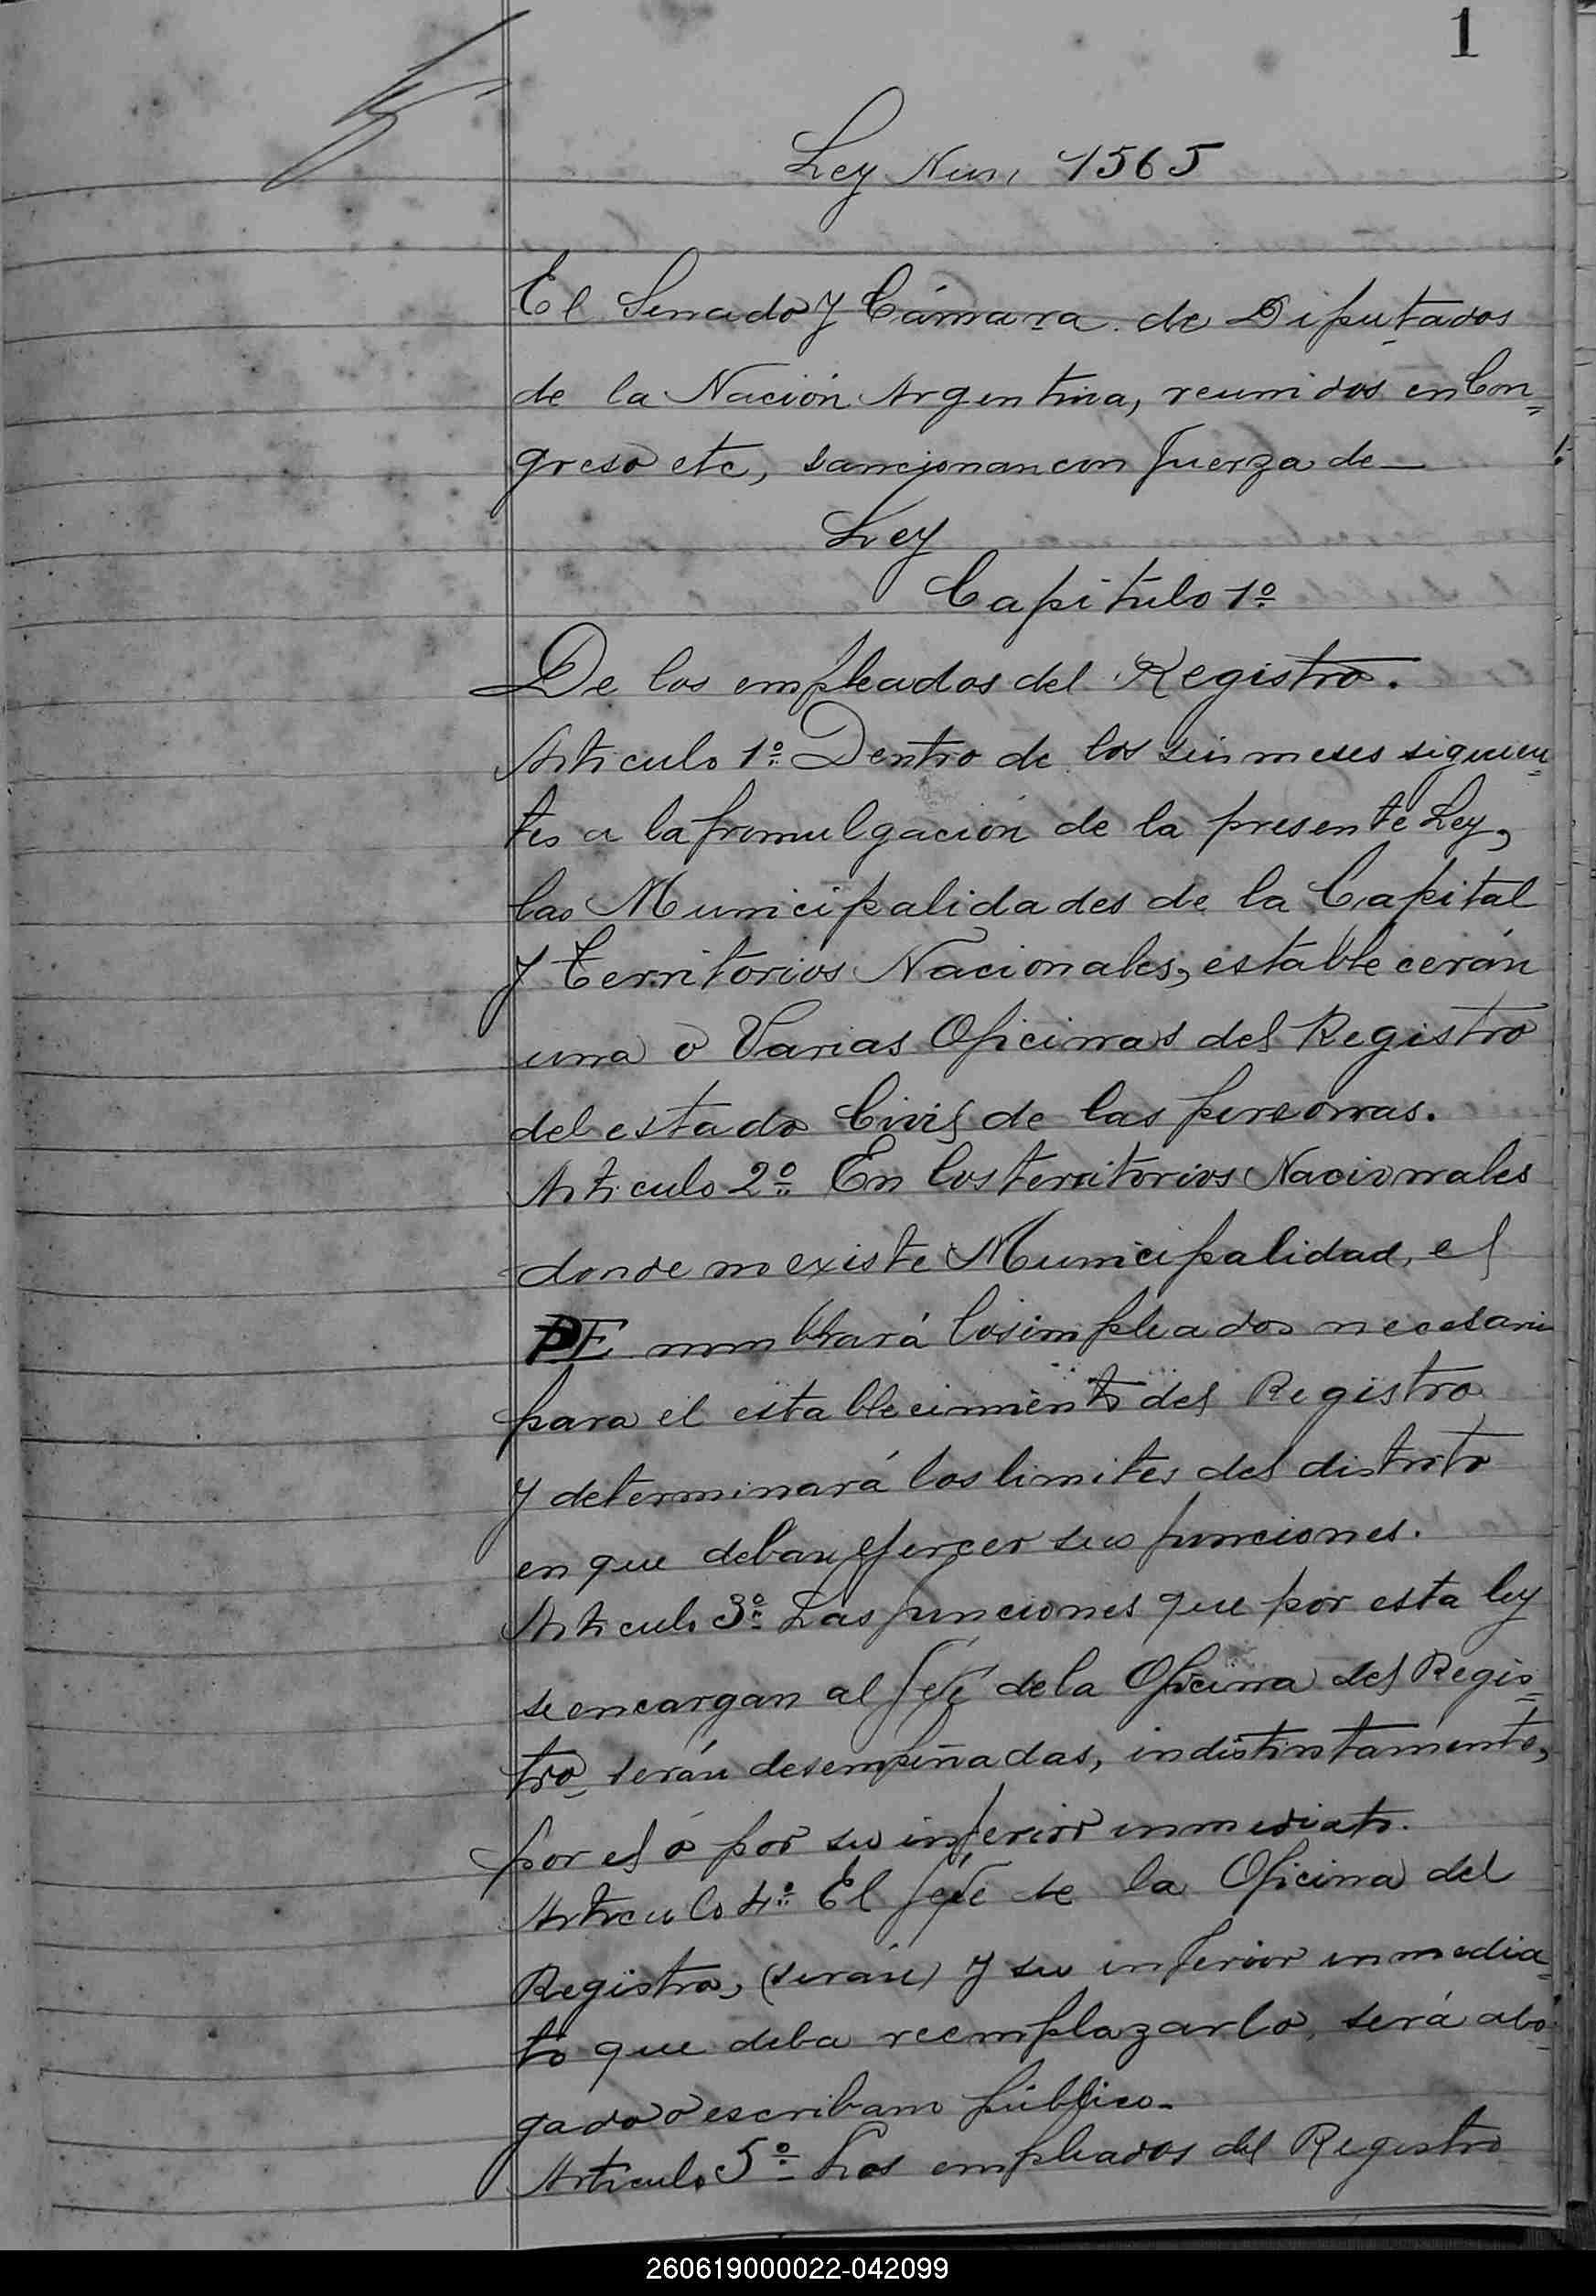 1
Ley Num, 1565
El Senado y Cámara de Diputados
de la Nación Argentina, reunidos en Con=
greso etc, sancionan con fuerza de—
Ley
Capitulo 1º
De los empleados del Registro.
Articulo 1º Dentro de los seis meses siguien=
tes a la promulgación de la presente Ley,
las Municipalidades de la Capital
y Territorios Nacionales, establecerán
una o Varias Oficinas del Registro
del estado Civil de las personas.
Articulo 2º En los territorios Nacionales
donde no existe Municipalidad, el
PE nombrará los empleados necesarios
para el establecimiento del Registro
y determinará los limites del distrito
en que deban ejercer sus funciones.
Articulo 3º Las funciones que por esta ley
se encargan al Jefe de la Oficina del Regis=
tro serán desempeñadas, indistintamente,
por el o por su inferior inmediato.
Articulo 4º El Jefe de la Oficina del
Registro, (serán) y su inferior inmedia=
to que deba reemplazarlo, será abo=
gado o escribano público—
Articulo 5º Los empleados del Registro
260619000022-042099